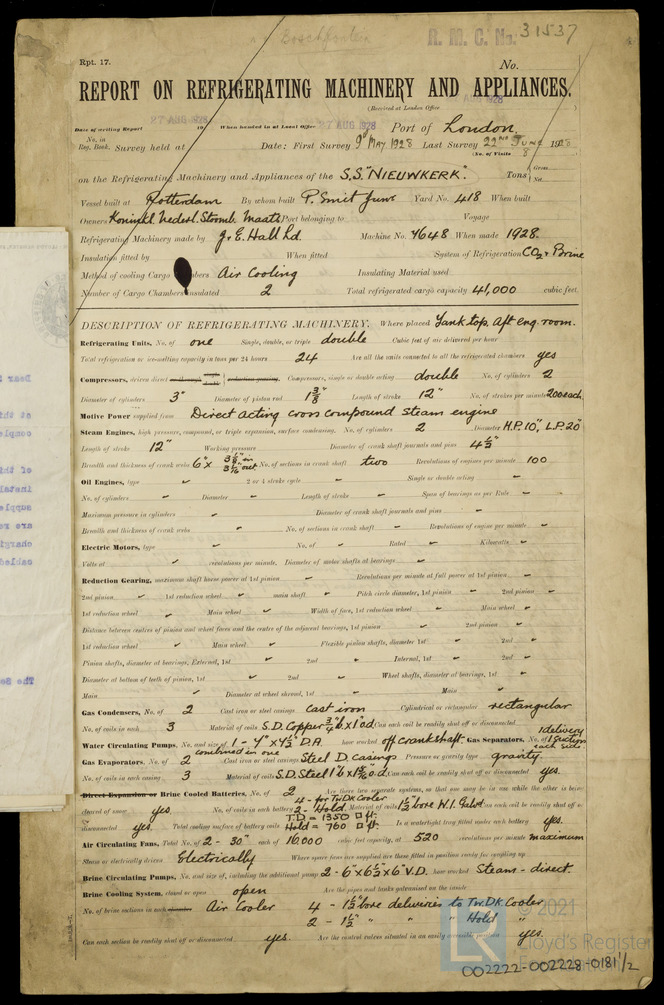 Boschfontein
R.M.C. No. 31537
Rpt. 17.
No.
REPORT ON REFRIGERATING MACHINERY AND APPLIANCES.
(Received at London Office
27 AUG 1928
Date of writing Report 19 When handed in at Local Office AUG 1928 Port of London
No. in Reg. Book. Survey held at Date: First Survey 9th May 1928 Last Survey 22nd June 1928
(No. of Visits 8
on the Refrigerating Machinery and Appliances of the S.S. "NIEUWKERK". Tons Gross Net
Vessel built at Rotterdam By whom built P. Smit Junr Yard No. 418 When built
Owners Koninkl. Nederl. Stoomb. Maats Port belonging to Voyage
Refrigerating Machinery made by J. & E. Hall Ld. Machine No. 4648 When made 1928.
Insulation fitted by When fitted System of Refrigeration CO2 & Brine
Method of cooling Cargo Chambers Air Cooling Insulating Material used
Number of Cargo Chambers insulated 2 Total refrigerated cargo capacity 41,000 cubic feet.
DESCRIPTION OF REFRIGERATING MACHINERY. Where placed Tank top. Aft eng. room.
Refrigerating Units, No. of one Single, double, or triple double Cubic feet of air delivered per hour
Total refrigerating or ice-melting capacity in tons per 24 hours 24 Are all the units connected to all the refrigerated chambers yes
Compressors, driven direct or through reduction gearing. Compressors, single or double acting double No. of cylinders 2
Diameter of cylinders 3" Diameter of piston rod 1 3/8 Length of stroke 12" No. of strokes per minute 200 each.
Motive Power supplied from Direct acting cross compound steam engine
Steam Engines, high pressure, compound, or triple expansion, surface condensing. No. of cylinders 2 Diameter H.P. 10", L.P. 20"
Length of stroke 12" Working pressure Diameter of crank shaft journals and pins 4 1/2"
Breadth and thickness of crank webs 6" x 3 1/8 in 3 1/16 out No. of sections in crank shaft two Revolutions of engines per minute 100
Oil Engines, type 2 or 4 stroke cycle Single or double acting
No. of cylinders Diameter Length of stroke Span of bearings as per Rule
Maximum pressure in cylinders Diameter of crank shaft journals and pins
Breadth and thickness of crank webs No. of sections in crank shaft Revolutions of engine per minute
Electric Motors, type No. of Rated Kilowatts
Volts at revolutions per minute. Diameter of motor shafts at bearings
Reduction Gearing, maximum shaft horse power at 1st pinion Revolutions per minute at full power at 1st pinion
2nd pinion 1st reduction wheel main shaft Pitch circle diameter, 1st pinion 2nd pinion
1st reduction wheel Main wheel Width of face, 1st reduction wheel Main wheel
Distance between centres of pinion and wheel faces and the centre of the adjacent bearings, 1st pinion 2nd pinion
1st reduction wheel Main wheel Flexible pinion shafts, diameter 1st 2nd
Pinion shafts, diameter at bearings, External, 1st 2nd Internal, 1st 2nd
Diameter at bottom of teeth of pinion, 1st 2nd Wheel shafts, diameter at bearings, 1st
Main Diameter at wheel shroud, 1st Main
Gas Condensers, No. of 2 Cast iron or steel casings Cast iron Cylindrical or rectangular rectangular
No. of coils in each 3 Material of coils S.D. Copper 3/4" b x 1" o.d. Can each coil be readily shut off or disconnected
Water Circulating Pumps, No. and size of 1 - 7" x 4 1/2" D.A. how worked off crank shaft. Gas Separators, No. of 1 delivery 1 suction each side
combined in one
Gas Evaporators, No. of 2 Cast iron or steel casings Steel D. casings Pressure or gravity type gravity
No. of coils in each casing 3 Material of coils S.D. Steel Can each coil be readily shut off or disconnected yes.
Direct Expansion or Brine Cooled Batteries, No. of 2 Are there two separate systems, so that one may be in use while the other is being
cleared of snow yes. No. of coils in each battery 4 - for Tw.Dk. Cooler 2 - Hold Material of coils 1 1/2 bore W.I. Galvd Can each coil be readily shut off or
disconnected yes. Total cooling surface of battery coils T.D = 1350 □ ft. Hold = 760 □ ft. Is a watertight tray fitted under each battery yes.
Air Circulating Fans, Total No. of 2 - 30" each of 16,000 cubic feet capacity, at 520 revolutions per minute maximum
Steam or electrically driven Electrically Where spare fans are supplied are these fitted in position ready for coupling up
Brine Circulating Pumps, No. and size of, including the additional pump 2 - 6" x 6 1/2" x 6" V.D. how worked Steam - direct.
Brine Cooling System, closed or open open Are the pipes and tanks galvanised on the inside
No. of brine sections in each chamber Air Cooler 4 - 1 1/2" bore deliveries to Tw.Dk. Cooler
2 - 1 1/2 " " " Hold "
Can each section be readily shut off or disconnected yes. Are the control valves situated in an easily accessible position yes.
© 2021
Lloyd's Register
Foundation
002222-002228-0181 1/2